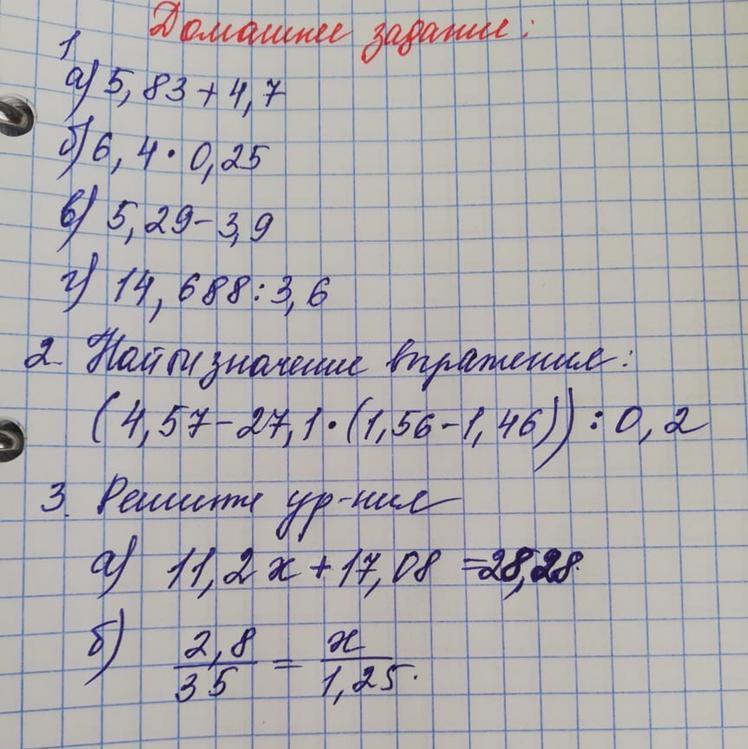 Домашнее задание:
1
а) 5,83 + 4,7
б) 6,4 · 0,25
в) 5,29 - 3,9
г) 14,688 : 3,6
2. Найти значение выражения:
(4,57 - 27,1 · (1,56 - 1,46)) : 0,2
3. Решите ур-ние
а) 11,2x + 17,08 = 28,28.
б) 2,8/35 = x/1,25.